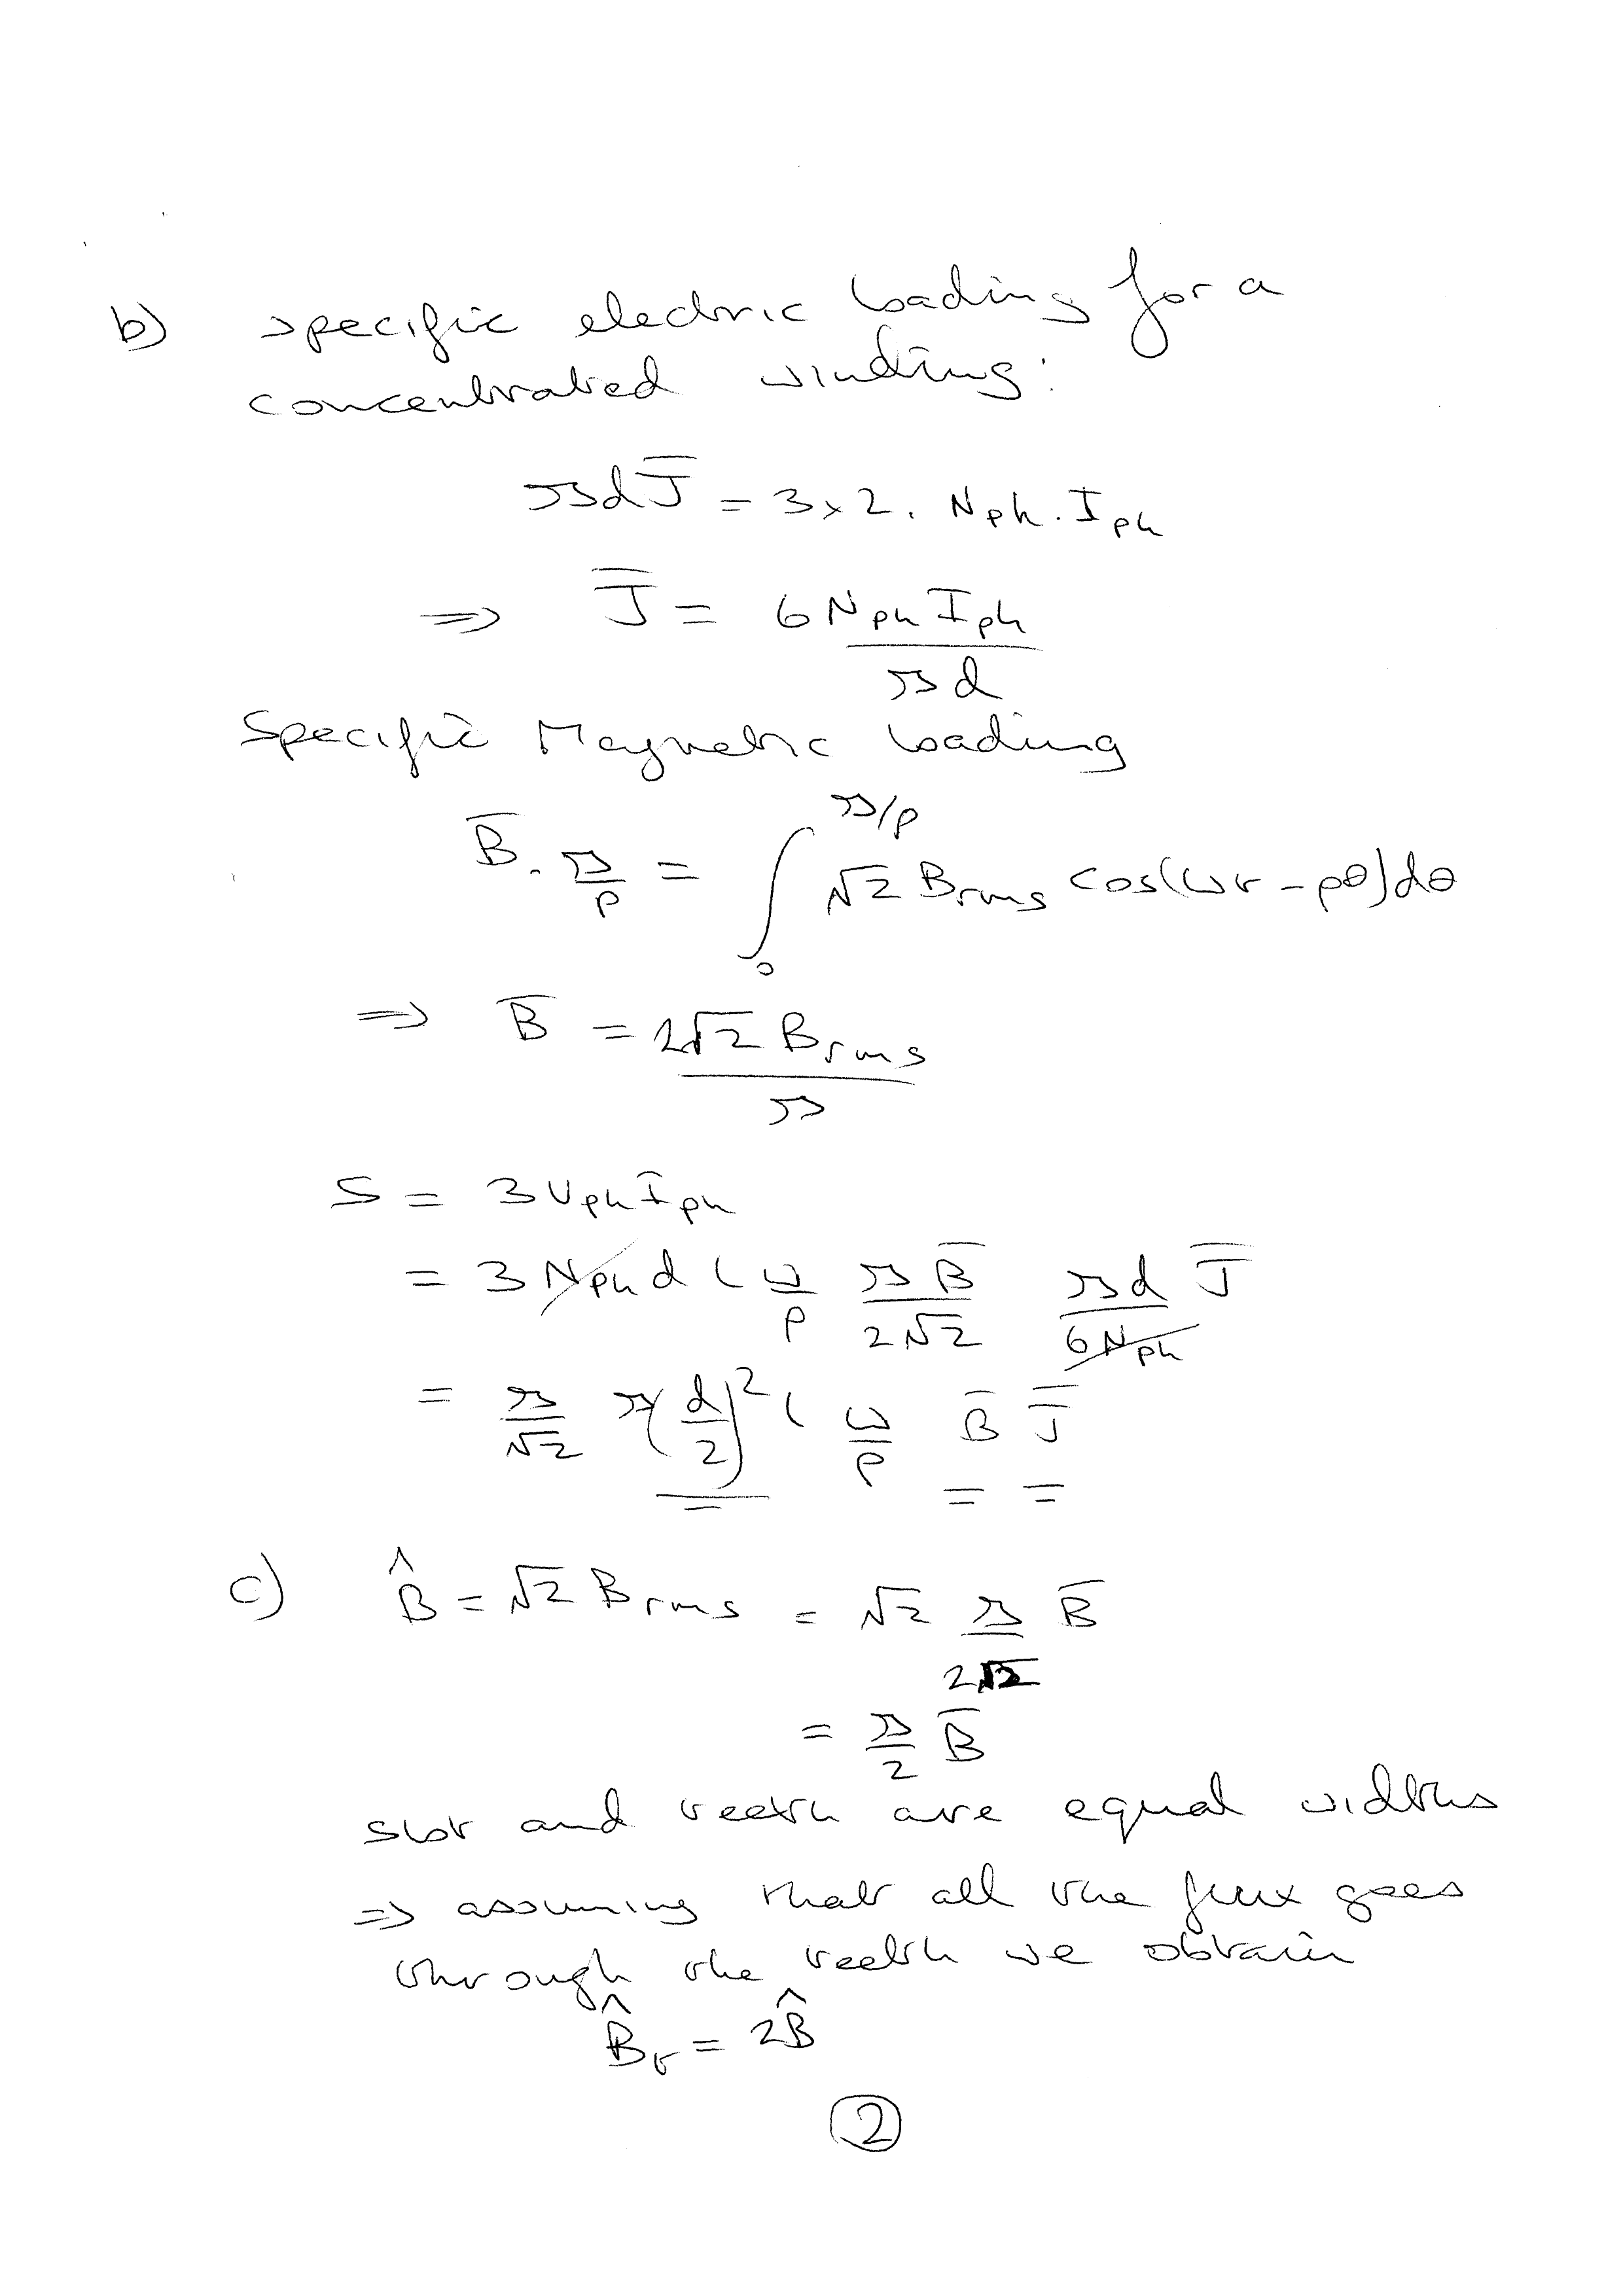 b) specific electric loading for a
concentrated winding:
πd J̿ = 3×2. Nph. Iph
⇒ J̿ = 6 Nph Iph / πd
Specific Magnetic loading
B̄. π/p = ∫₀^(π/p) √2 Brms cos(ωt - pθ)dθ
⇒ B̄ = 2√2 Brms / π
S = 3 Vph Iph
= 3 Nph d l ω/p πB̄/2√2 πd/6Nph J̿
= π/√2 π(d/2)² l ω/p B̄ J̿
c) B̂ = √2 Brms = √2 π/2√2 B̄
= π/2 B̄
slot and teeth are equal widths
⇒ assuming that all the flux goes
through the teeth we obtain
B̂t = 2B̂
2